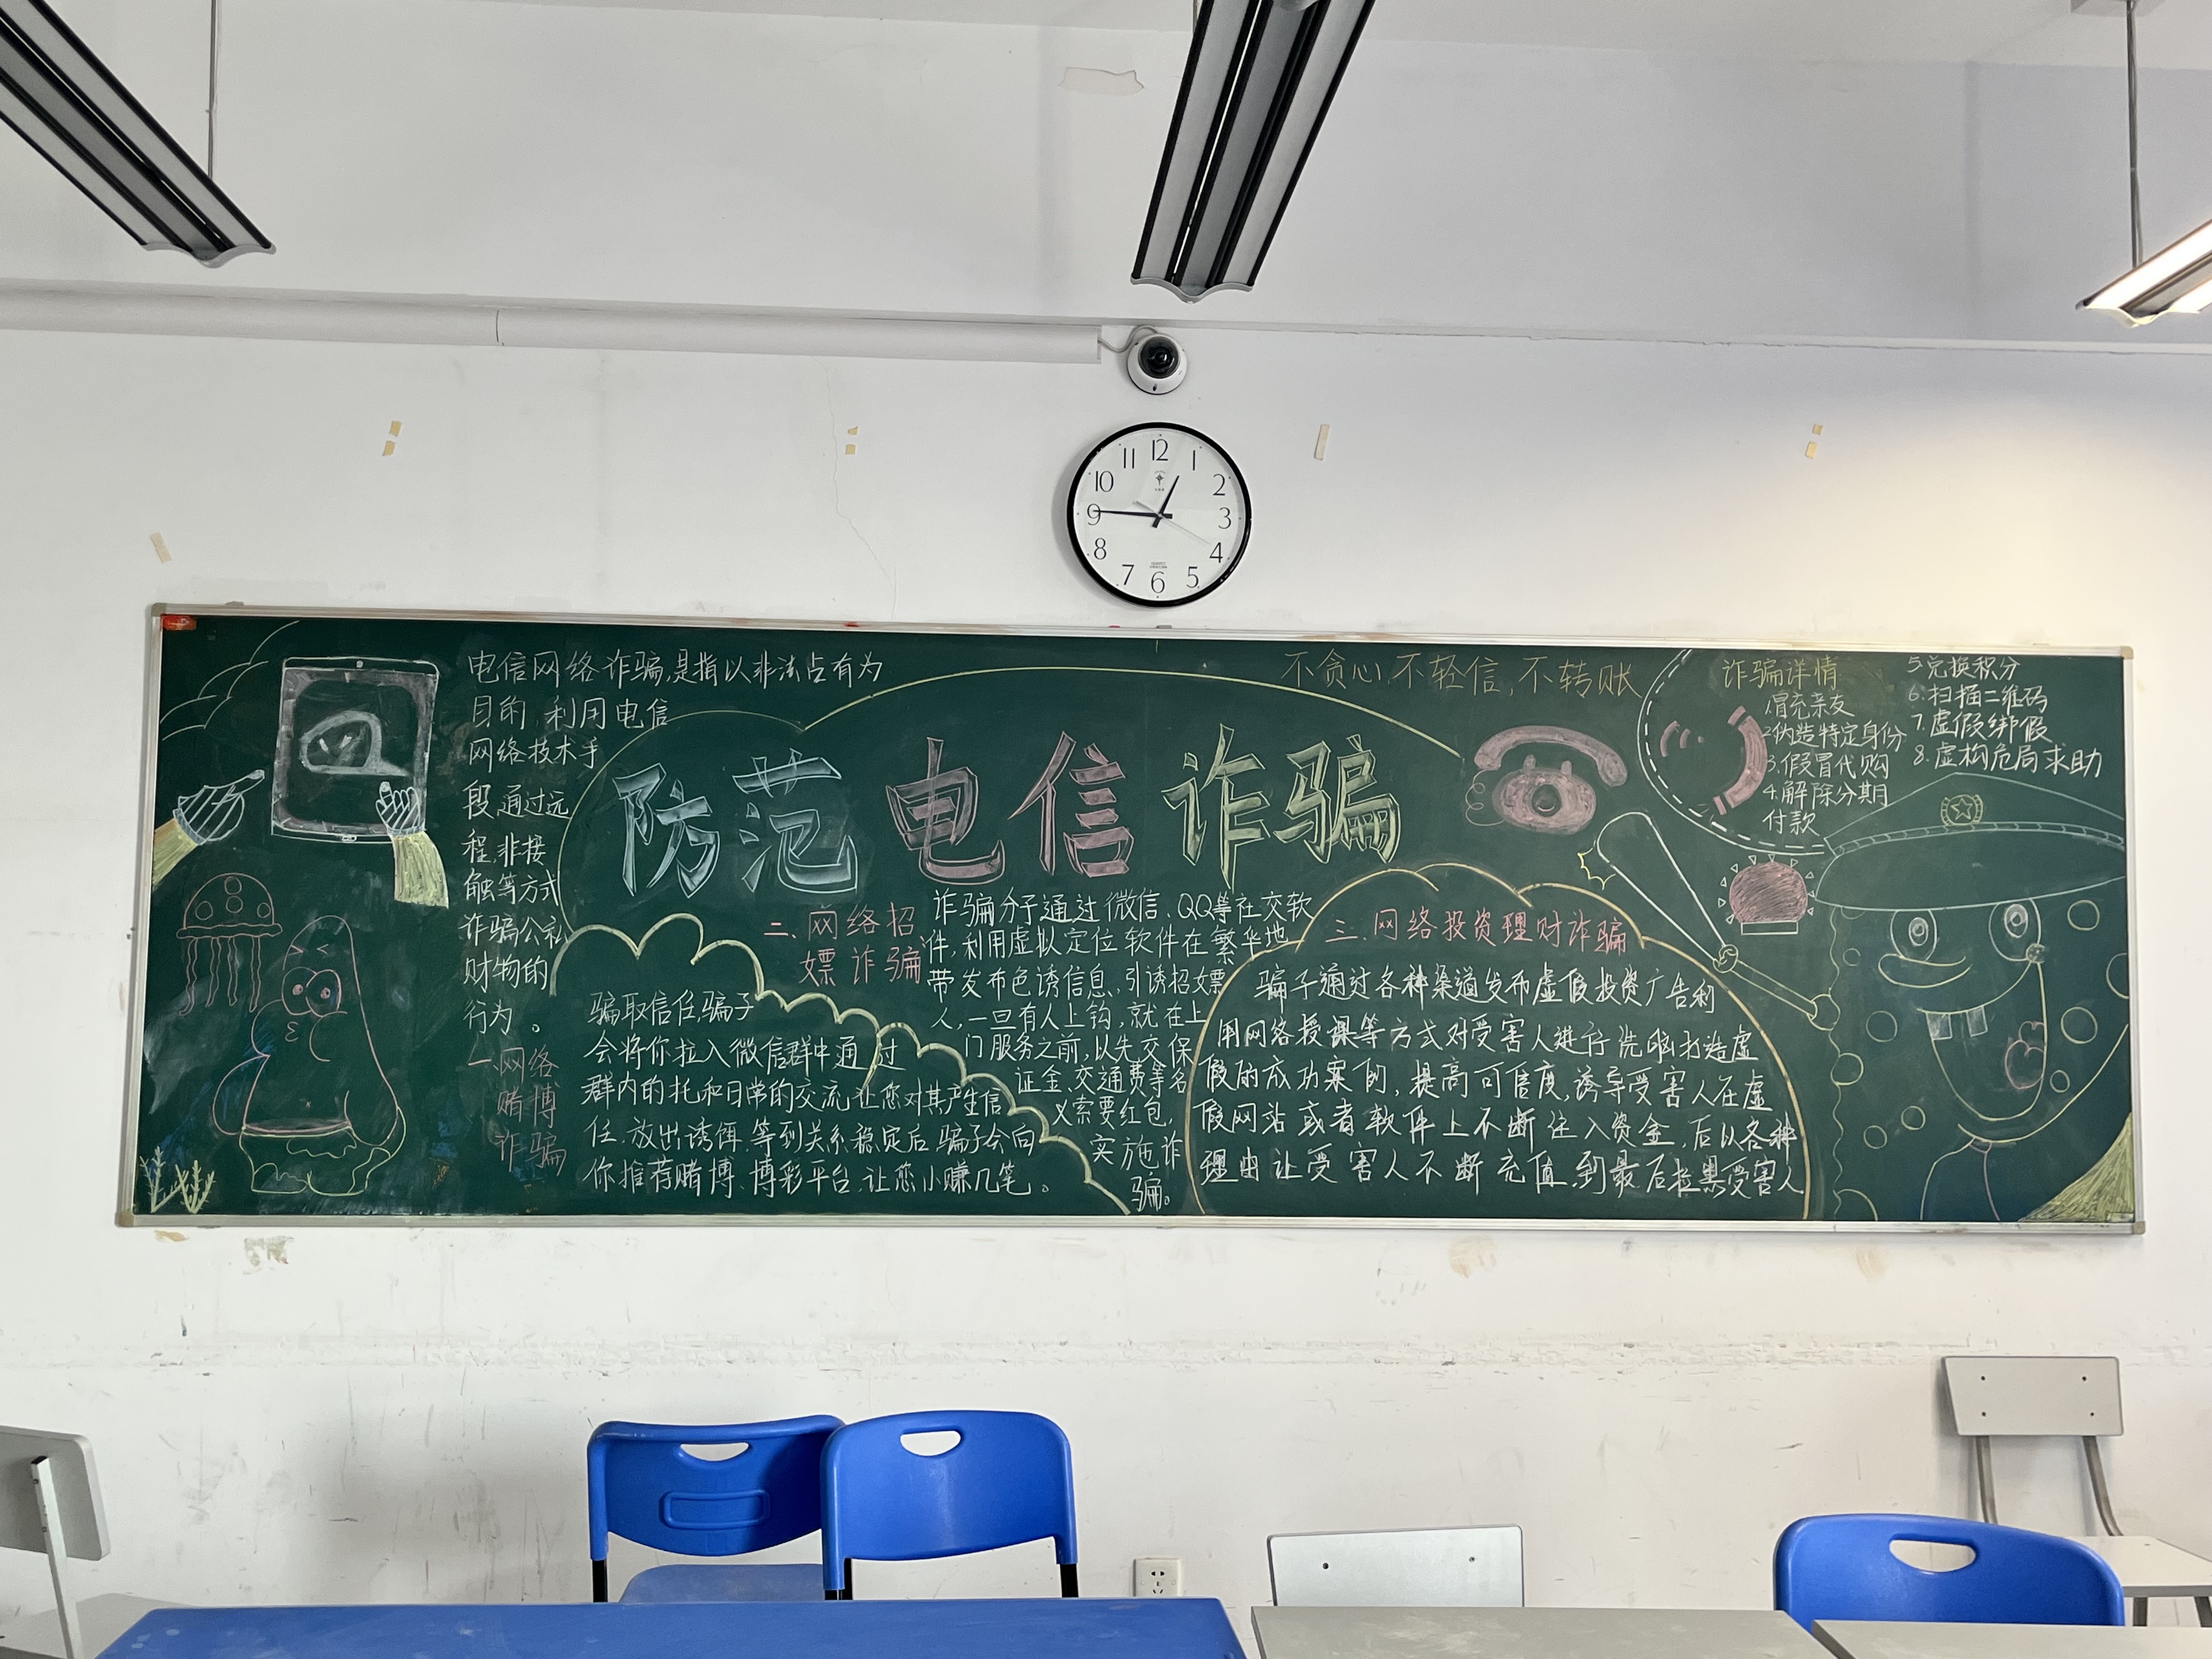 12
1
2
3
4
5
6
7
8
9
10
11
电信网络诈骗,是指以非法占有为
目的,利用电信
网络技术手
段,通过远
程,非接
触等方式
诈骗公私
财物的
行为。
防范电信诈骗
不贪心,不轻信,不转账
一.网络
赌博
诈骗
骗取信任,骗子
会将你拉入微信群中通过
群内的托和日常的交流,让您对其产生信
任,放出诱饵,等到关系稳定后,骗子会向
你推荐赌博、博彩平台,让您小赚几笔。
二.网络招
嫖诈骗
诈骗分子通过微信、QQ等社交软
件,利用虚拟定位软件在繁华地
带发布色诱信息,引诱招嫖
人,一旦有人上钩,就在上
门服务之前,以先交保
证金、交通费等名
义索要红包,
实施诈
骗。
三.网络投资理财诈骗
骗子通过各种渠道发布虚假投资广告利
用网络授课等方式对受害人进行洗脑打造虚
假的成功案例,提高可信度,诱导受害人在虚
假网站或者软件上不断注入资金,后以各种
理由让受害人不断充值,到最后拉黑受害人
诈骗详情
1.冒充亲友
2.伪造特定身份
3.假冒代购
4.解除分期
付款
5.兑换积分
6.扫描二维码
7.虚假绑假
8.虚构危局求助